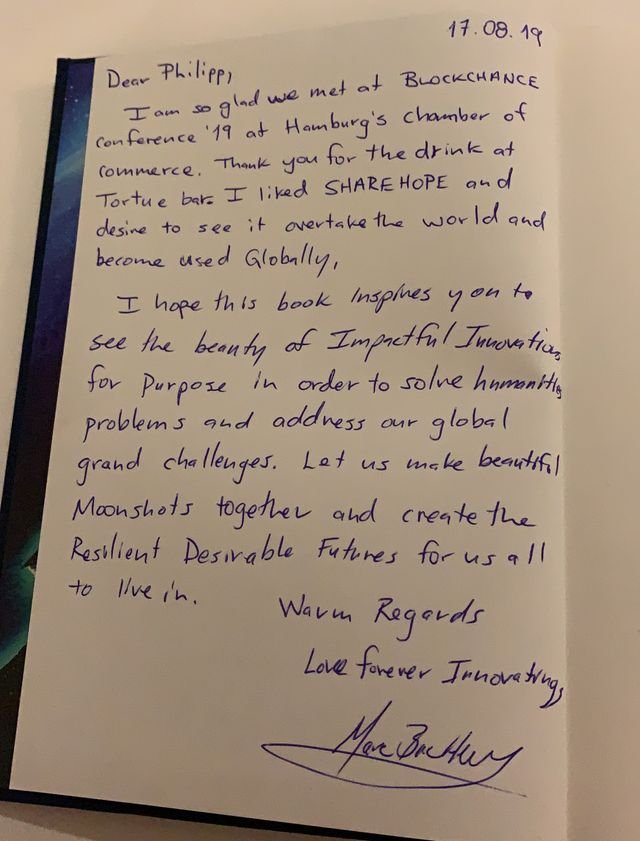 17.08.19
Dear Philipp,
I am so glad we met at BLOCKCHANCE
Conference '19 at Hamburg's chamber of
commerce. Thank you for the drink at
Tortue bar. I liked SHAREHOPE and
desire to see it overtake the world and
become used Globally,
I hope this book inspires you to
see the beauty of Impactful Innovation
for Purpose in order to solve humanities
problems and address our global
grand challenges. Let us make beautiful
Moonshots together and create the
Resilient Desirable Futures for us all
to live in.
Warm Regards
Love forever Innovating,
Marc Buckley